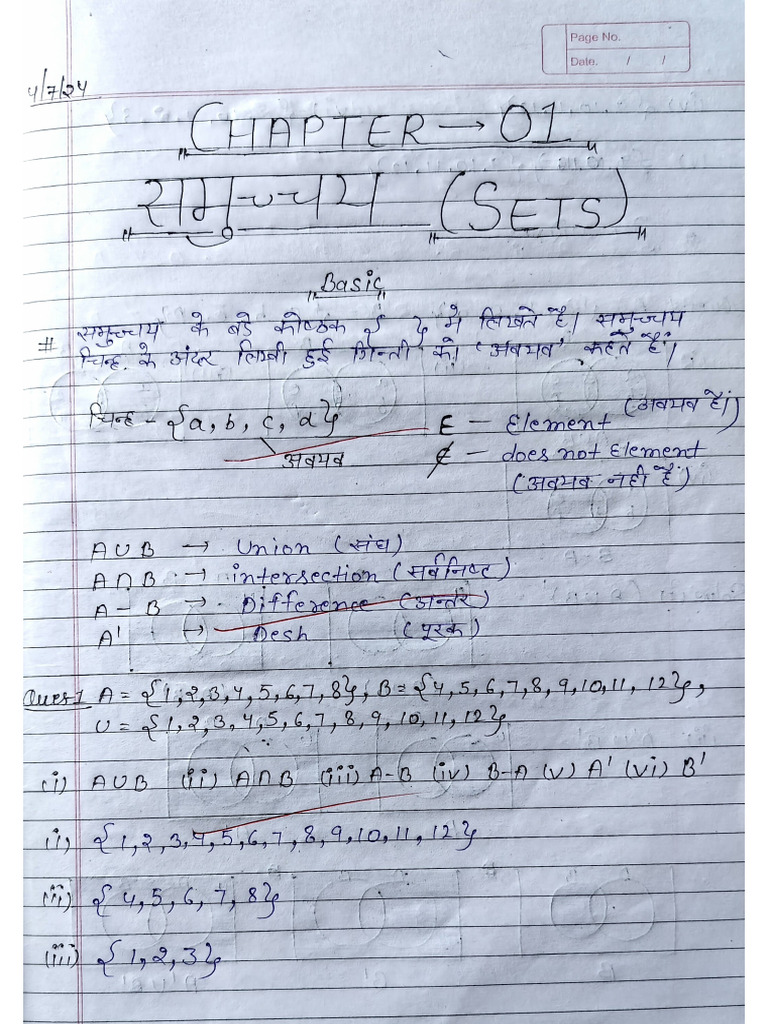 Page No.
Date. / /
4/7/24
CHAPTER → 01
समुच्चय (SETS)
Basic
# समुच्चय के बडे कोष्ठक { } में लिखते है। समुच्चय
चिन्ह के अंदर लिखी हुई गिन्ती को 'अवयव' कहते हैं।
चिन्ह - {a, b, c, d}
अवयव
E – Element (अवयव है।)
∉ – does not Element
(अवयव नही हैं)
A∪B → Union (संघ)
A∩B → intersection (सर्वनिष्ट)
A – B → Difference (अन्तर)
A' → Desh (पूरक)
Ques1 A = {1,2,3,4,5,6,7,8}, B = {4,5,6,7,8,9,10,11,12},
U = {1,2,3,4,5,6,7,8,9,10,11,12}
(i) A∪B (ii) A∩B (iii) A-B (iv) B-A (v) A' (vi) B'
(i) {1,2,3,4,5,6,7,8,9,10,11,12}
(ii) {4,5,6,7,8}
(iii) {1,2,3}